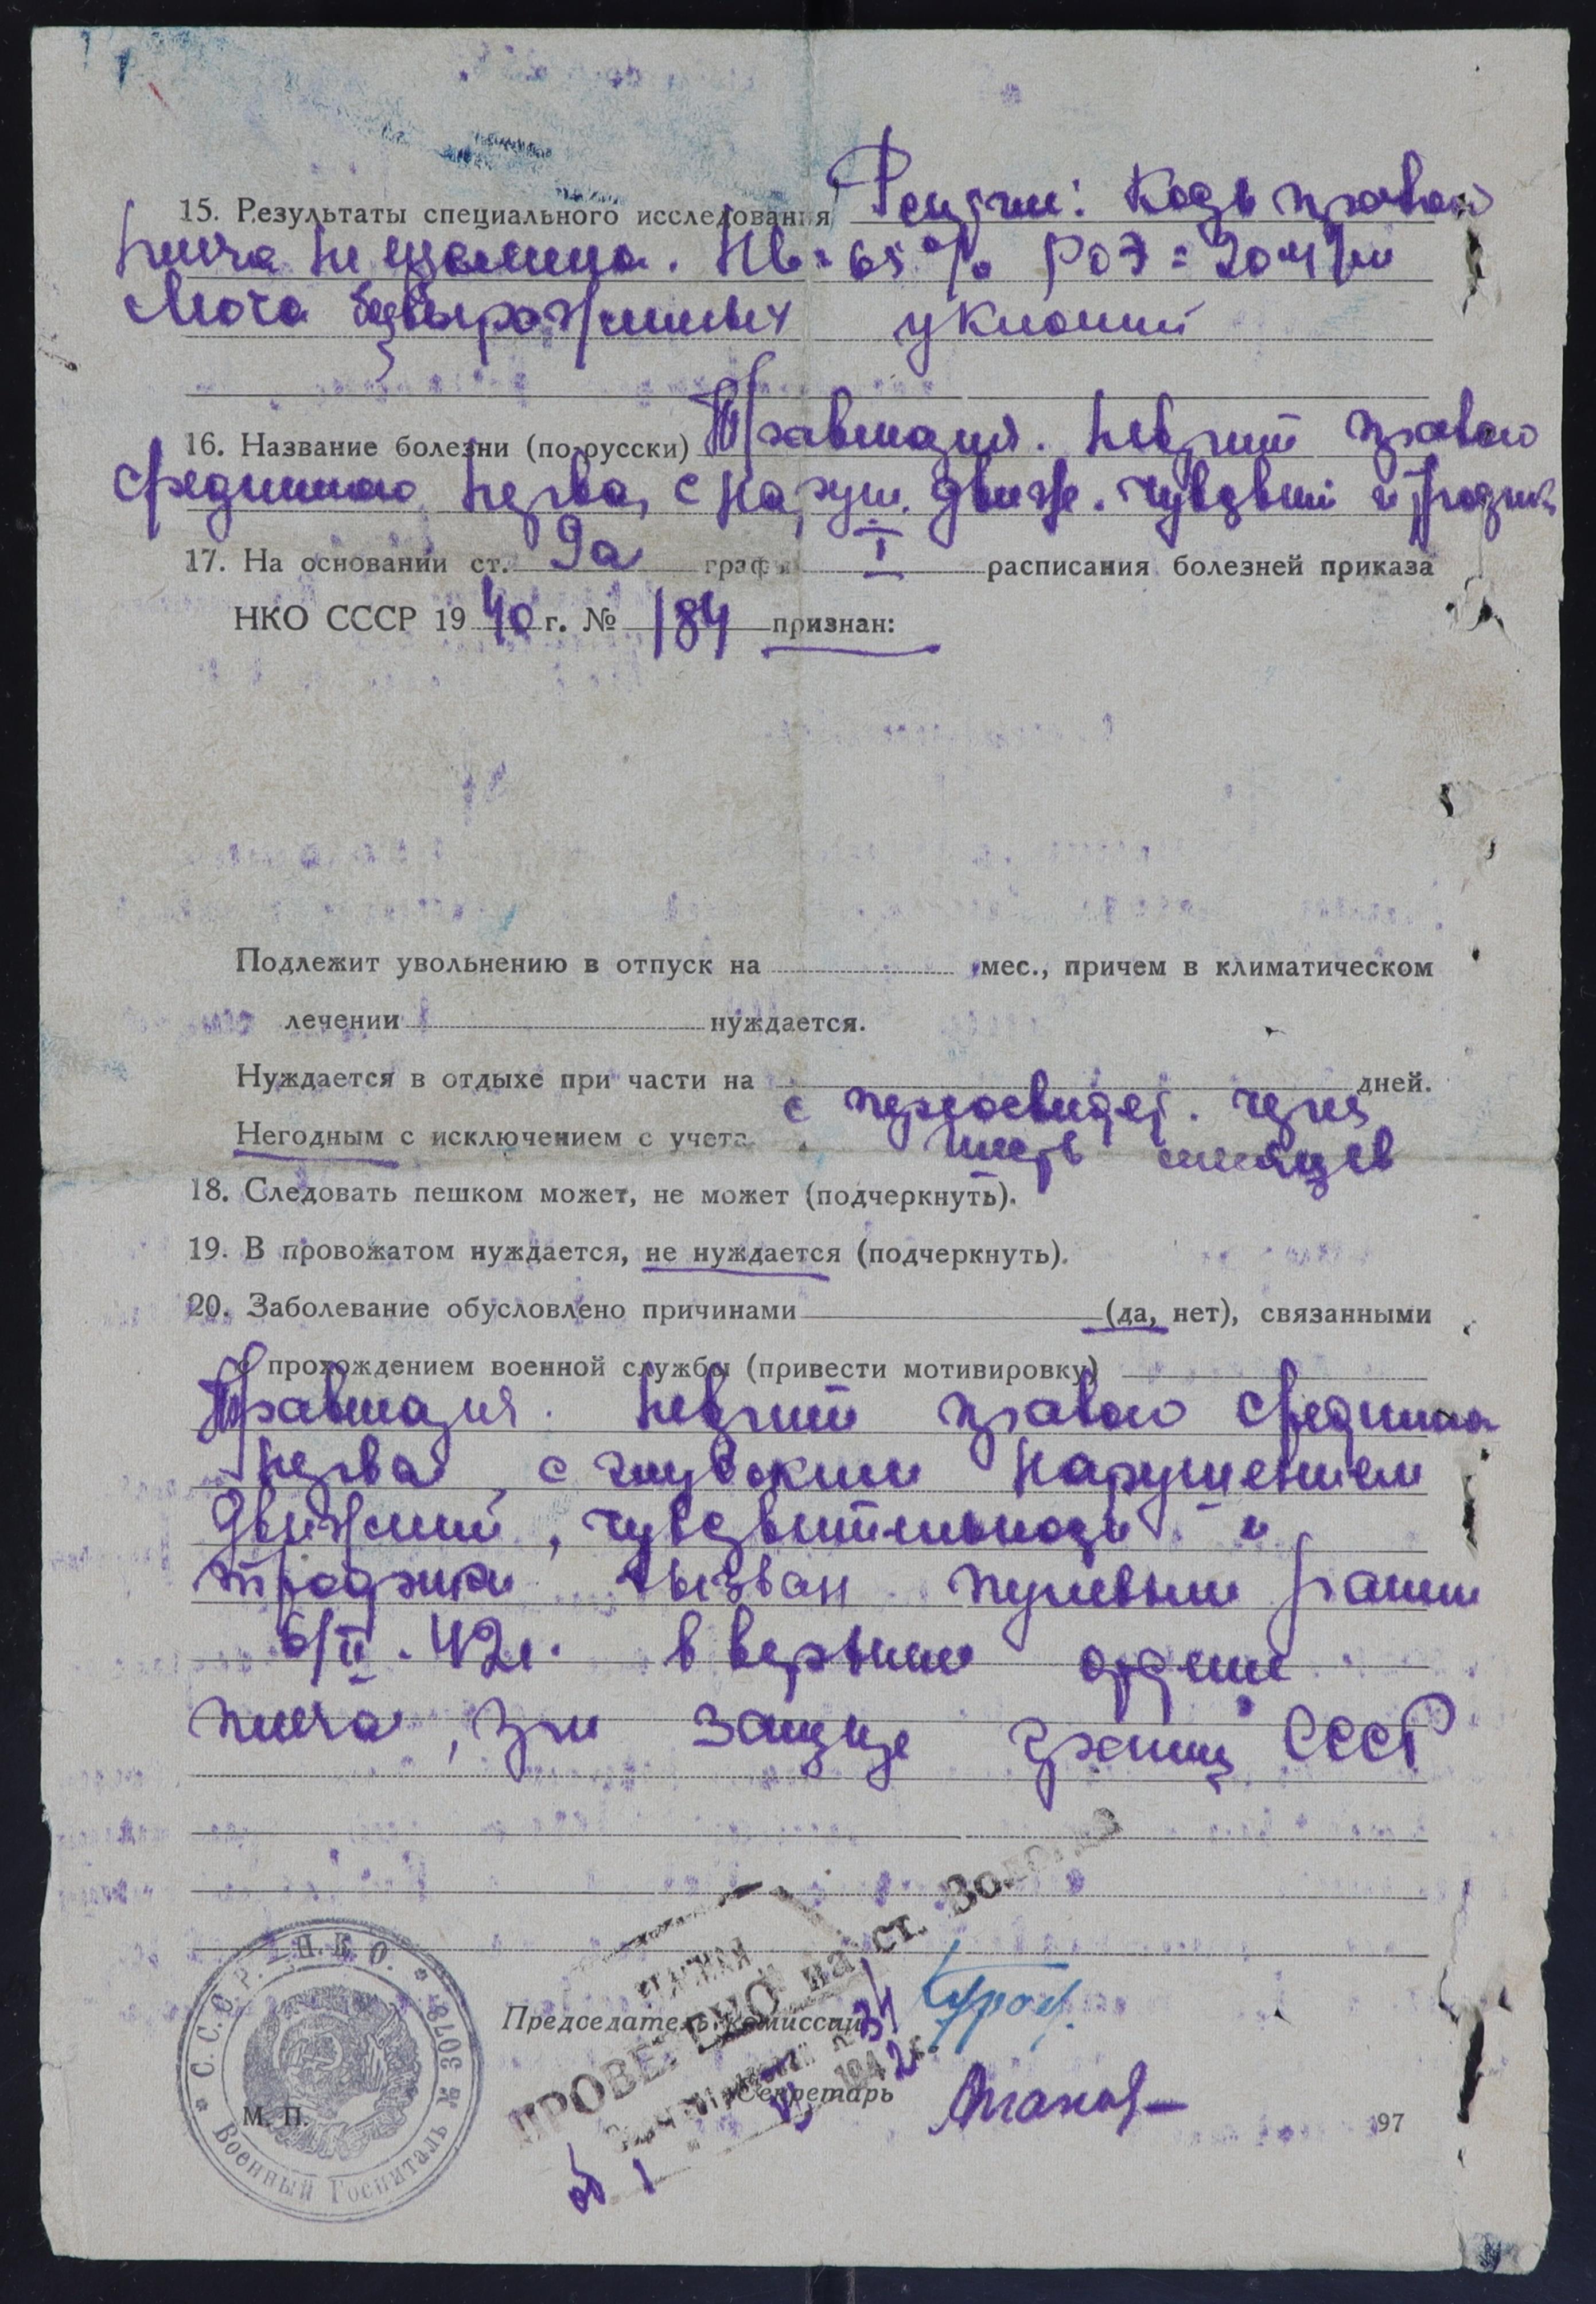 15. Результаты специального исследования Рентген: Кость правого
плеча не изменена. Hb = 65% РОЭ = 20 м/м
Моча без выраженных уклонений
16. Название болезни (по-русски) Травматич. неврит правого
срединного нерва, с наруш. движ. чувствит и трофики
17. На основании ст. 9а графы I расписания болезней приказа
НКО СССР 1940 г. № 184 признан:
Подлежит увольнению в отпуск на мес., причем в климатическом
лечении нуждается.
Нуждается в отдыхе при части на дней.
с переосвидет. через
Негодным с исключением с учета шесть месяцев
18. Следовать пешком может, не может (подчеркнуть).
19. В провожатом нуждается, не нуждается (подчеркнуть).
20. Заболевание обусловлено причинами (да, нет), связанными
с прохождением военной службы (привести мотивировку)
неврит правого срединного
нерва, с глубоким нарушением
движений, чувствительности и
трофики вызван пулевым ранен
6/II. 42г. в верхнюю
плеча, при защите границ СССР
С.С.С.Р. - Н.К.О. * № 3078 * Военный Госпиталь
М. П.
ПРОВЕРЕНО на ст.
194 2 г.
Председатель комиссии
Секретарь
97